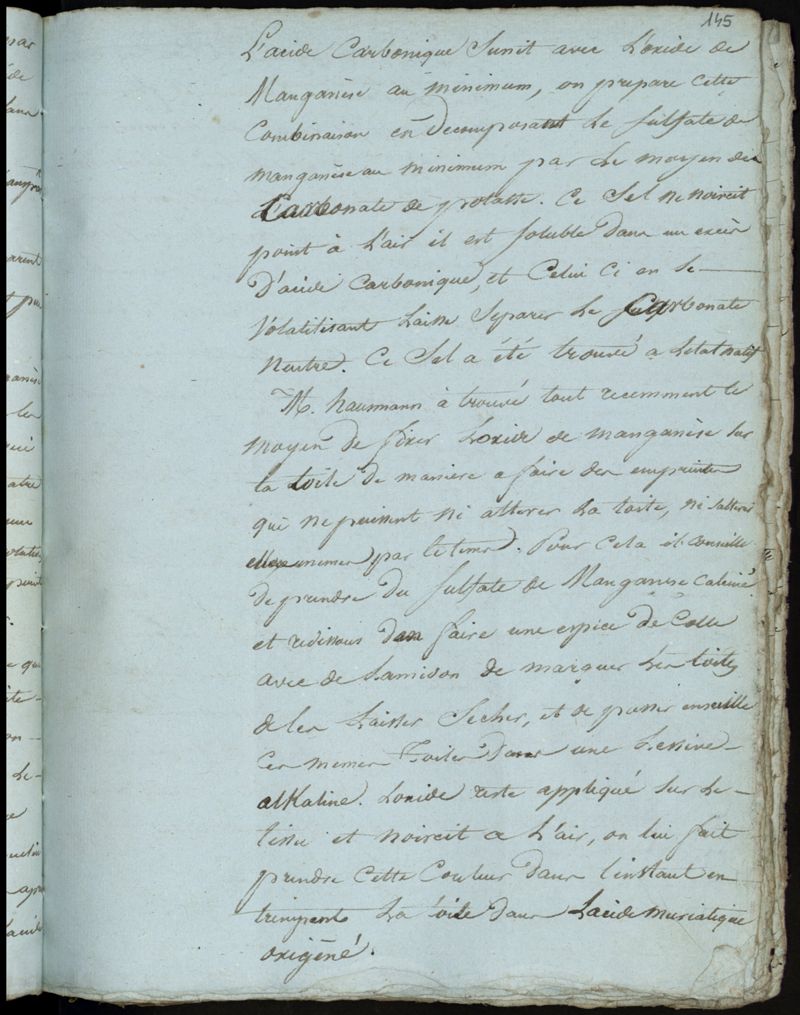 145
L'acide Carbonique Sunit avec L'oxide de
Manganèse au minimum, on prepare cette
Combinaison en Decomposant Le Sulfate de
manganèse au minimum par Le moyen du
Carbonate de potasse. Ce Sel ne noircit
point à L'air il est Soluble Dans un excès
D'acide Carbonique, et Celui Ci en Se
Volatilisant Laisse Separer Le Carbonate
Neutre. Ce Sel a été trouvé a Letat natif
M. haumann à trouvé tout recemment le
moyen De fixer Loxide de manganèse Sur
la toile De maniere a faire des empreintes
qui ne puissent ni alterer La toile, ni Salterer
elles memes par le tems. Pour Cela il conseille
De prendre Du Sulfate de Manganese Calciné
et redissous Den faire une espece De Colle
avec de Lamidon de marquer Les toiles
de les Laisser Secher, et de passer ensuitte
Ces memes Toiles Dans une Lessive
alKaline. Loxide reste appliqué Sur Le
tissu et noircit a L'air, on lui fait
prendre Cette Couleur Dans linstant en
trempant La toile Dans Lacide muriatique
oxigéné.